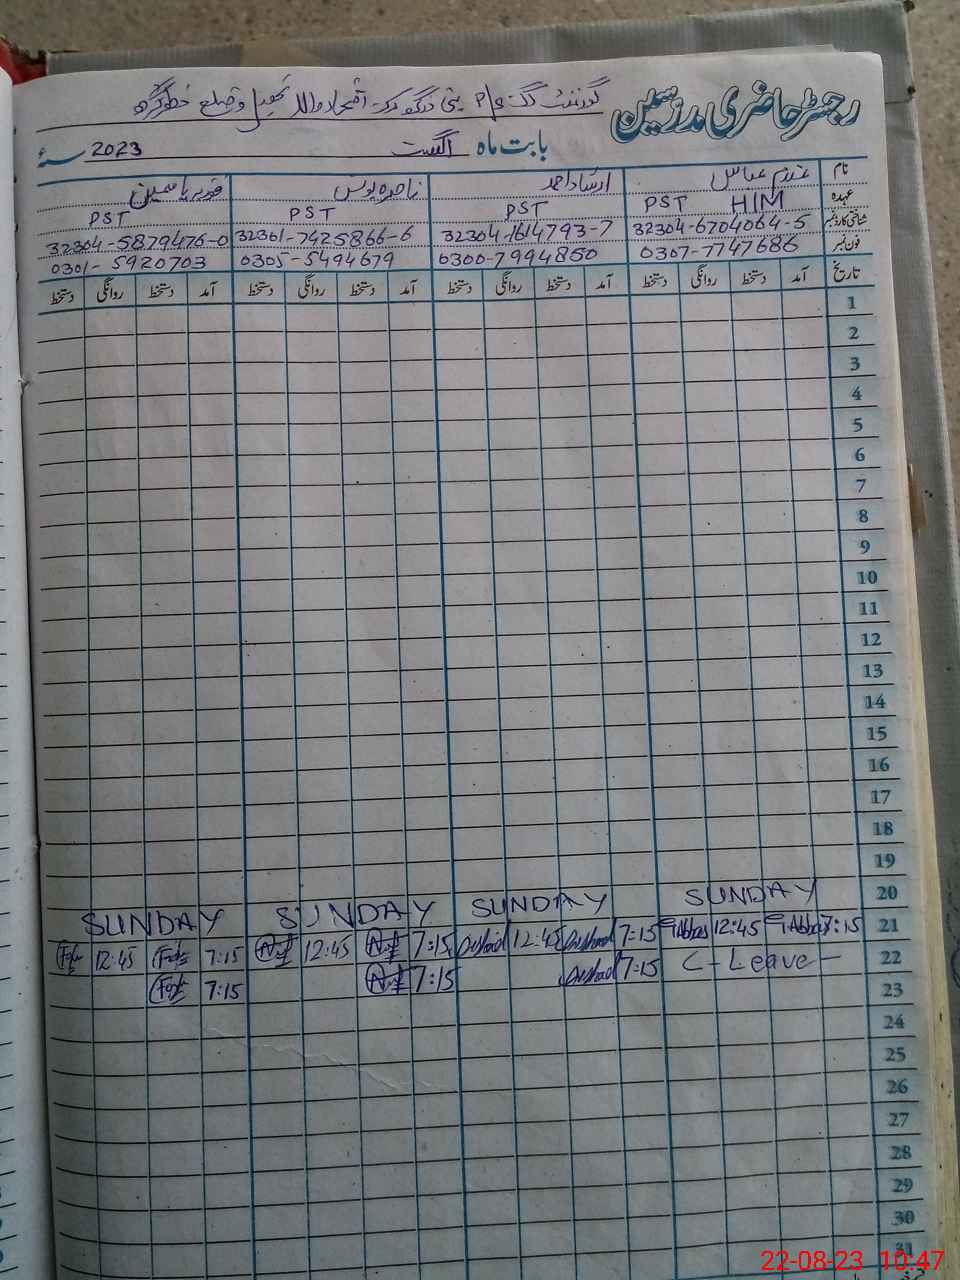 رجسٹر حاضری مدرسین
گورنمنٹ P/S بستی
بابت ماہ اگست 2023
نام غلام عباس ارشاد احمد ناصرہ یاسمین
عہدہ PST HIM PST PST PST
شناختی کارڈ نمبر 32304-6704064-5 32304-1614793-7 32301-7425866-6 32304-5879476-0
فون نمبر 0307-7747686 0300-7994850 0305-5494679 0301-5920703
تاریخ آمد دستخط روانگی دستخط آمد دستخط روانگی دستخط آمد دستخط روانگی دستخط آمد دستخط روانگی دستخط
1
2
3
4
5
6
7
8
9
10
11
12
13
14
15
16
17
18
19
20 SUNDAY SUNDAY SUNDAY SUNDAY
21 7:15 G.Abbas 12:45 G.Abbas 7:15 Arshad 12:45 Arshad 7:15 12:45 7:15 12:45
22 C-Leave- 7:15 Arshad 7:15 7:15
23
24
25
26
27
28
29
30
31
22-08-23 10:47